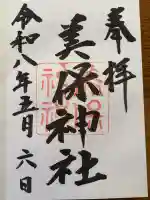 奉拝
美保神社
令和八年五月六日